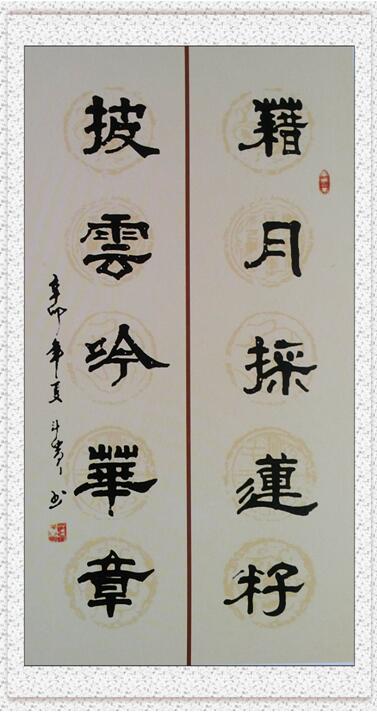 藉月採蓮籽
披雲吟華章
辛卯年夏斗書